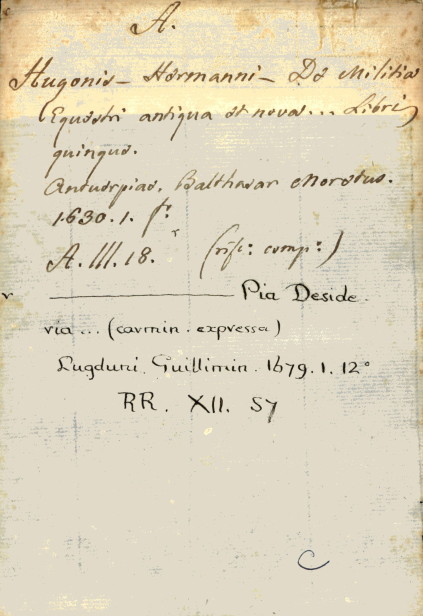 A.
Hugonis - Hermanni - De Militia
Equestri antiqua et nova... Libri
quinque.
Antuerpiae, Balthasar Moretus.
1630. 1. f:
A. III. 18. (rif: comp:)
———— Pia Deside-
ria... (carmin. expressa)
Lugduni, Guillimin. 1679. 1. 12°
RR. XII. 57
C